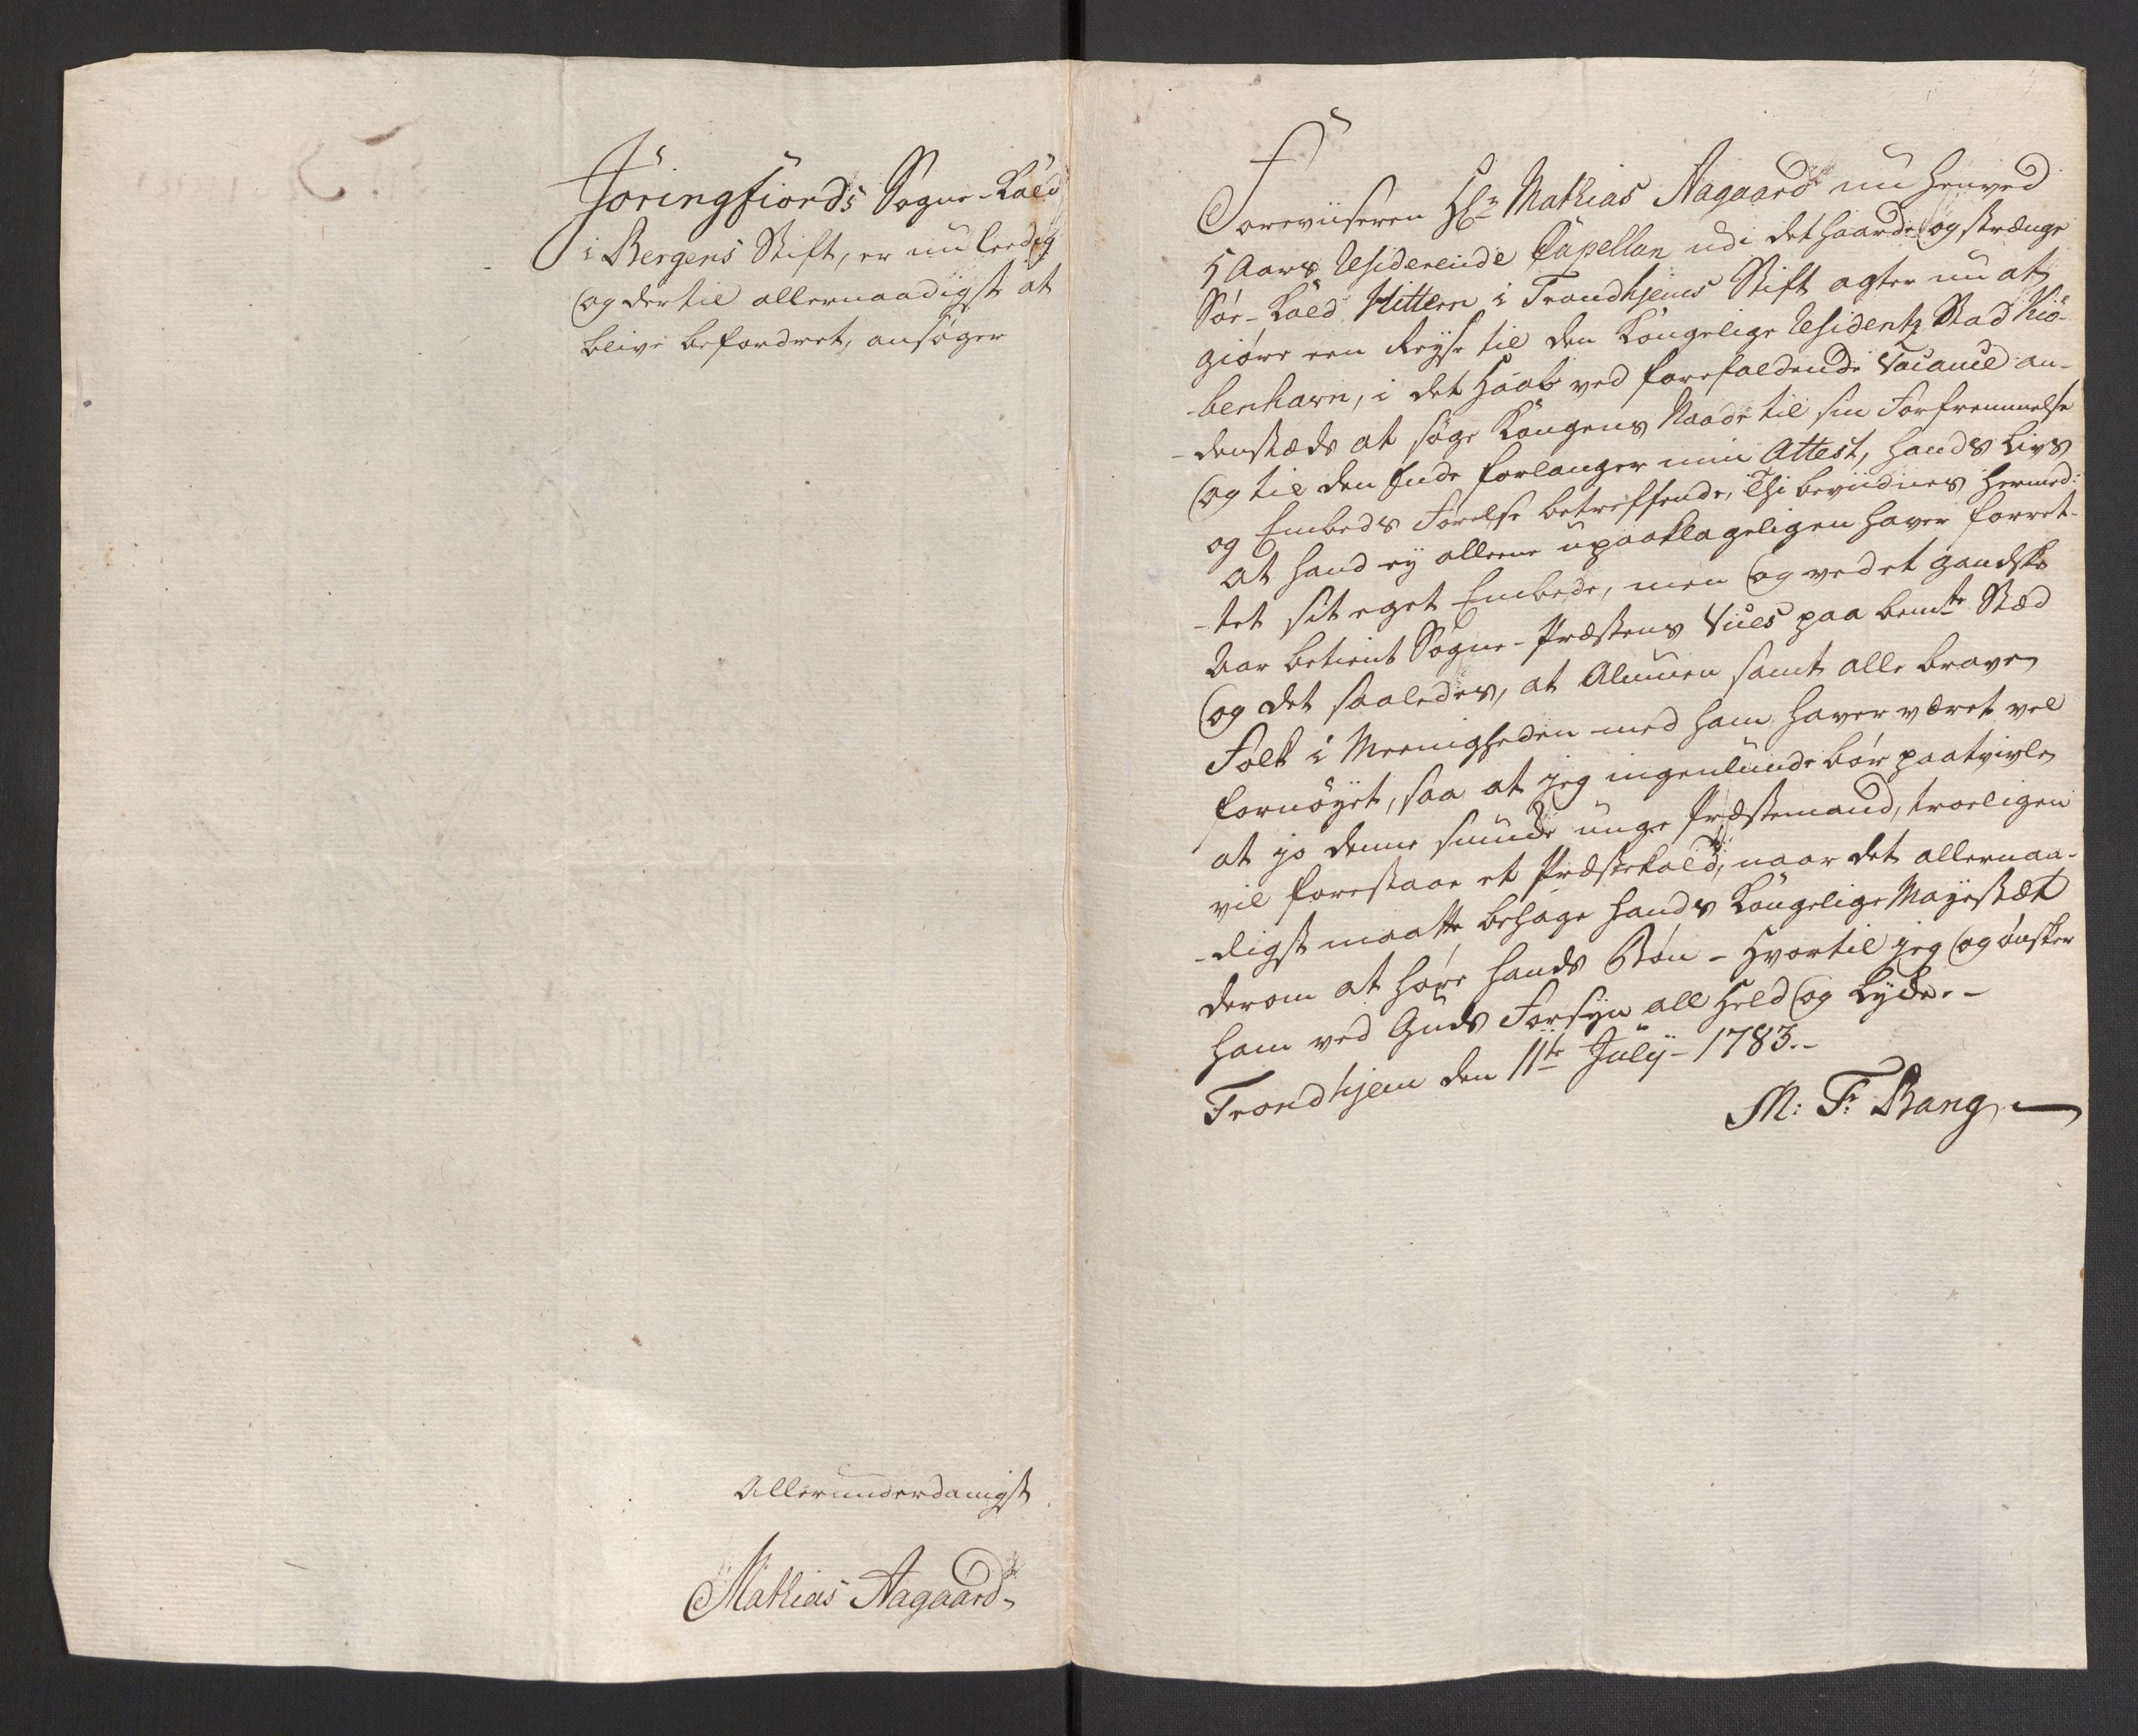 Jøringfiords Sogne-Kald
i Bergens Stift, er nu leedig
og dertil allernaadigst at
blive befordret, ansøger
Allerunderdanigst
Mathias Aagaard
Foreviiseren Hr. Mathias Aagaard nu henved
5 Aars Residerende Capellan udi det haarde og strænge
Søe-Kald Hitteren i Trondhjems Stift agter nu at
giøre een Reyse til den Kongelige Residentz Stad Kiö-
benhavn, i det Haab ved forefaldende Vacance an-
denstæds at søge Kongens Naade til sin Forfremmelse
og til den Ende forlanger min Attest, hands Livs
og Embeds Førelse betreffende, Thi bevidnes hermed:
at hand ey alleene upaaklageligen haver forret-
tet sit eget Embede, men og ved et gandske
Aar betient Sogne-Præstens Vices paa bemte Stæd
og det saaledes, at Almuen samt alle brave
Folk i Meenigheden med ham haver været vel
fornöyet, saa at jeg ingenlunde bør paatvivle
at jo denne smucke unge Præstemand, troeligen
vil forestaae et Præstekald, naar det allernaa-
digst maatte behage hands Kongelige Mayestæt
derom at høre hands Bøn - Hvortil jeg og ønsker
ham ved Guds Forsyn all Held og Lykke. -
Trondhjem den 11te Julÿ - 1783. -
M: Fr: Bang